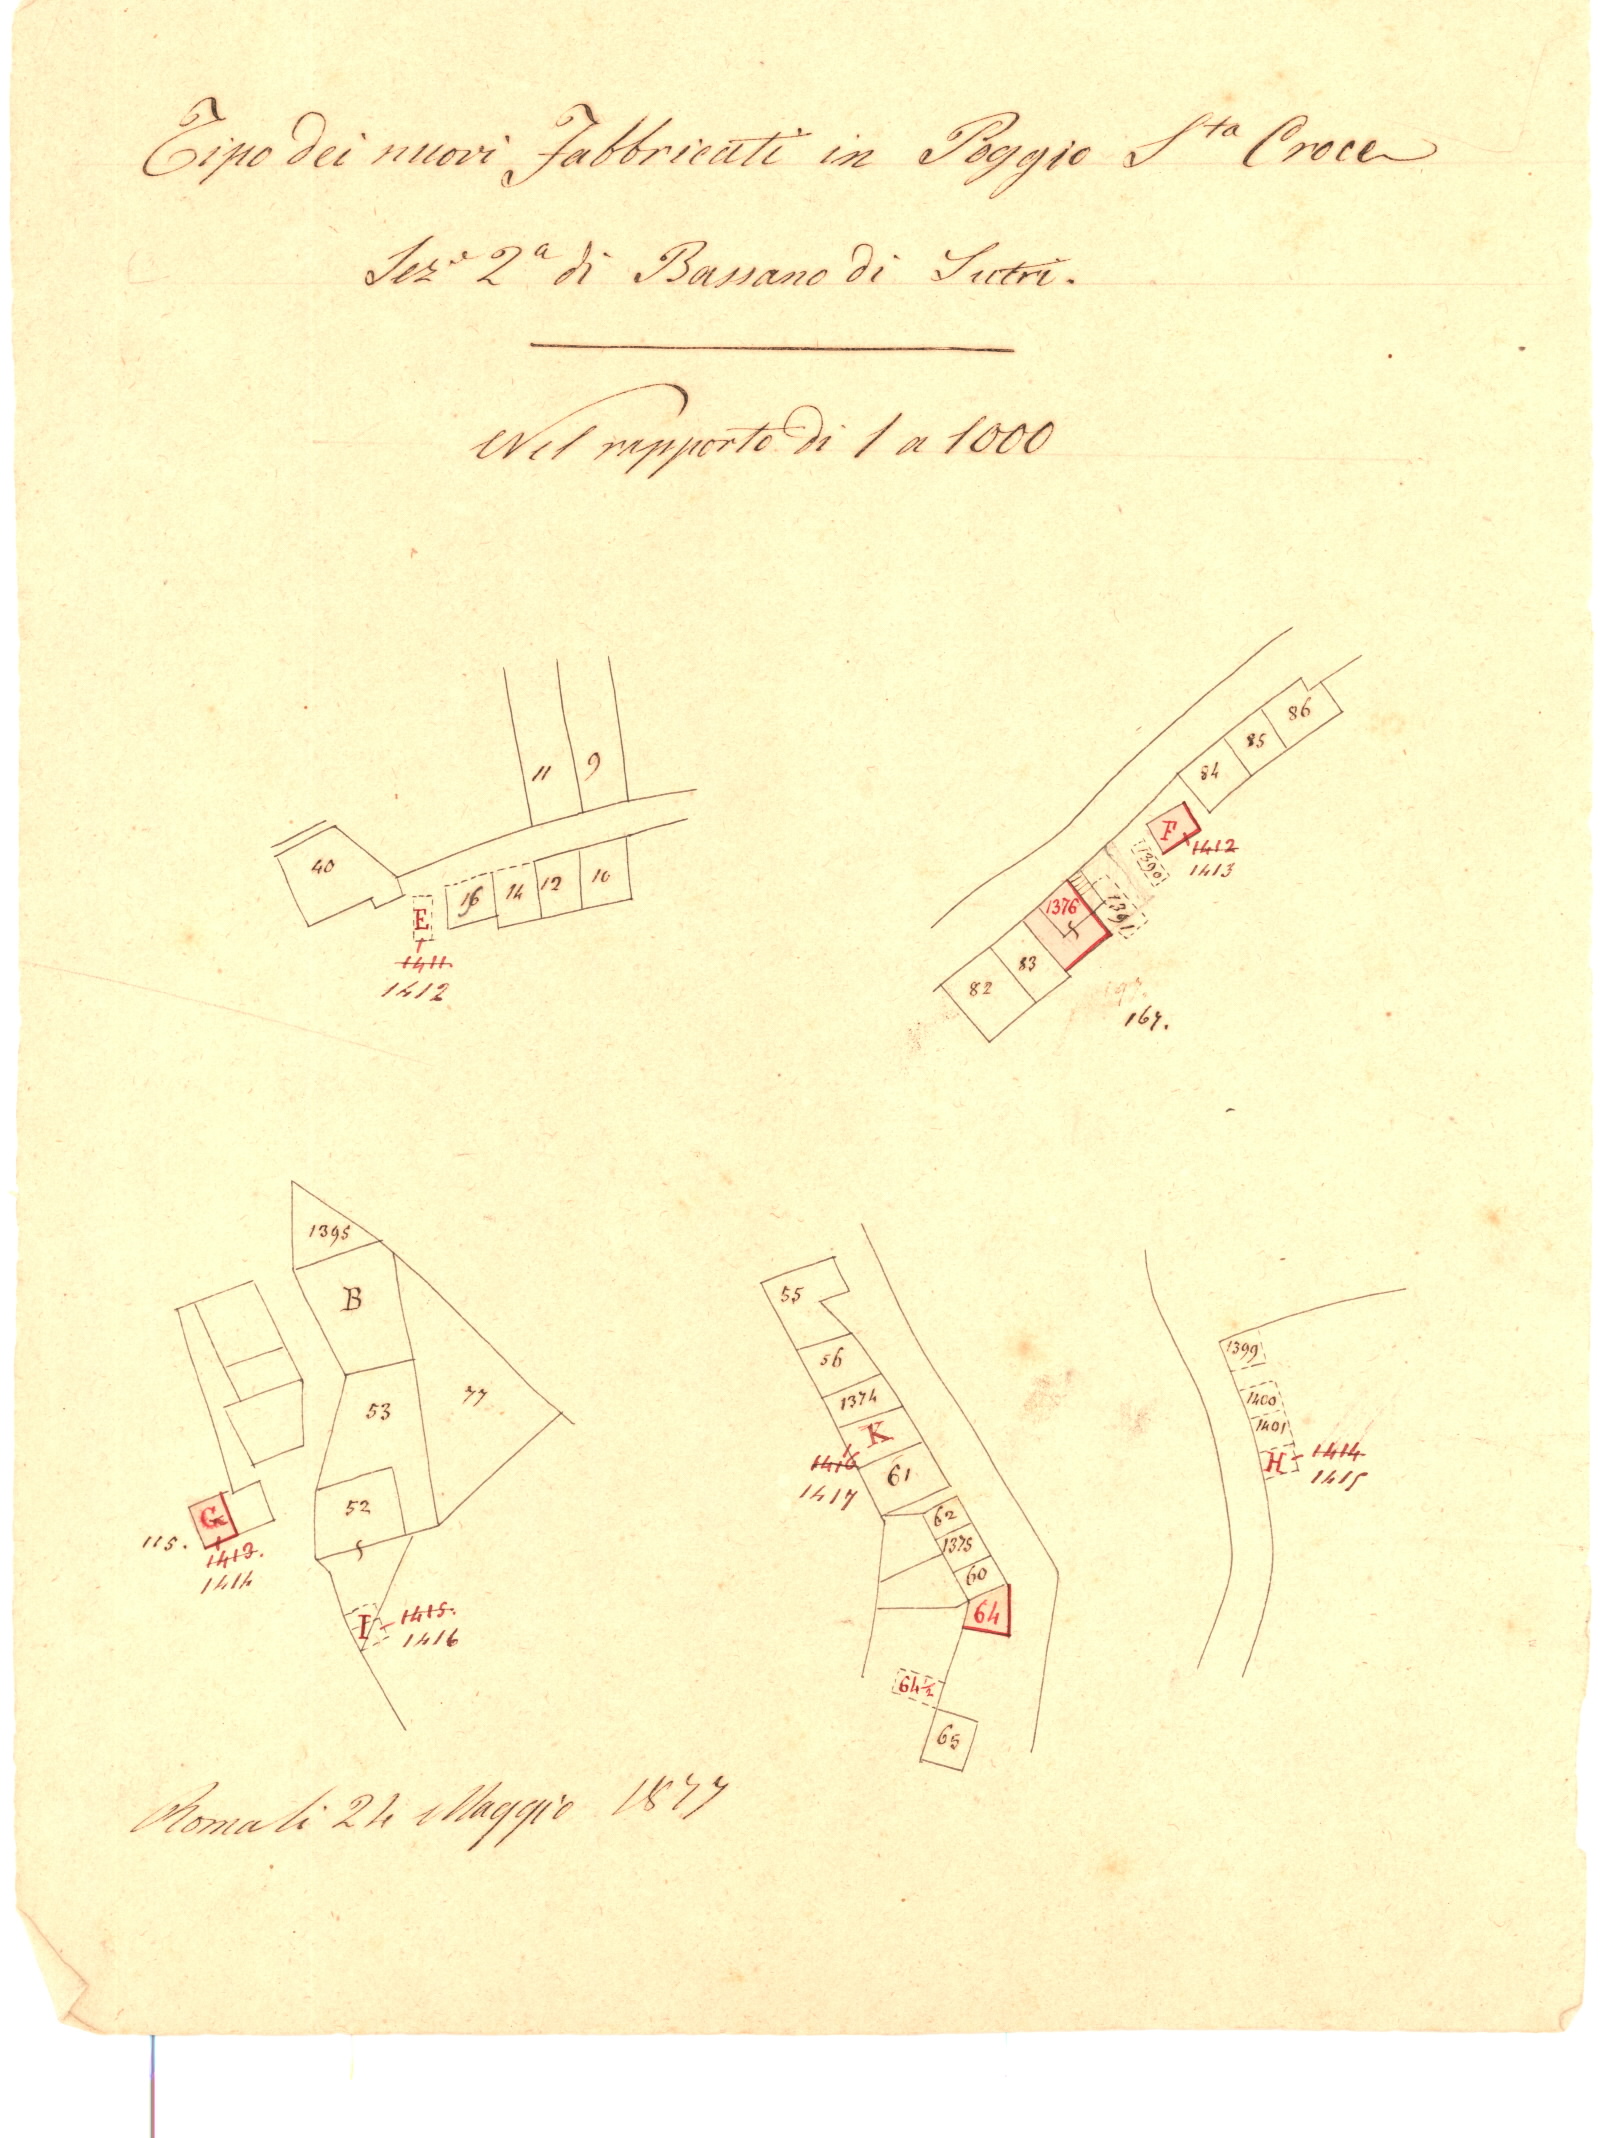 Tipo dei nuovi Fabbricati in Poggio Sta Croce
Seze 2a di Bassano di Sutri.
Nel rapporto di 1 a 1000
11
9
40
16
14
12
10
E
1411
1412
86
85
84
F
1412
1413
1390
1391
1376
83
82
167.
1395
B
53
77
52
G
115.
1413.
1414
I
1415.
1416
55
56
1374
K
1416
1417
61
62
1375
60
64
64½
65
1399
1400
1401
H
1414
1415
Roma li 24 Maggio 1877